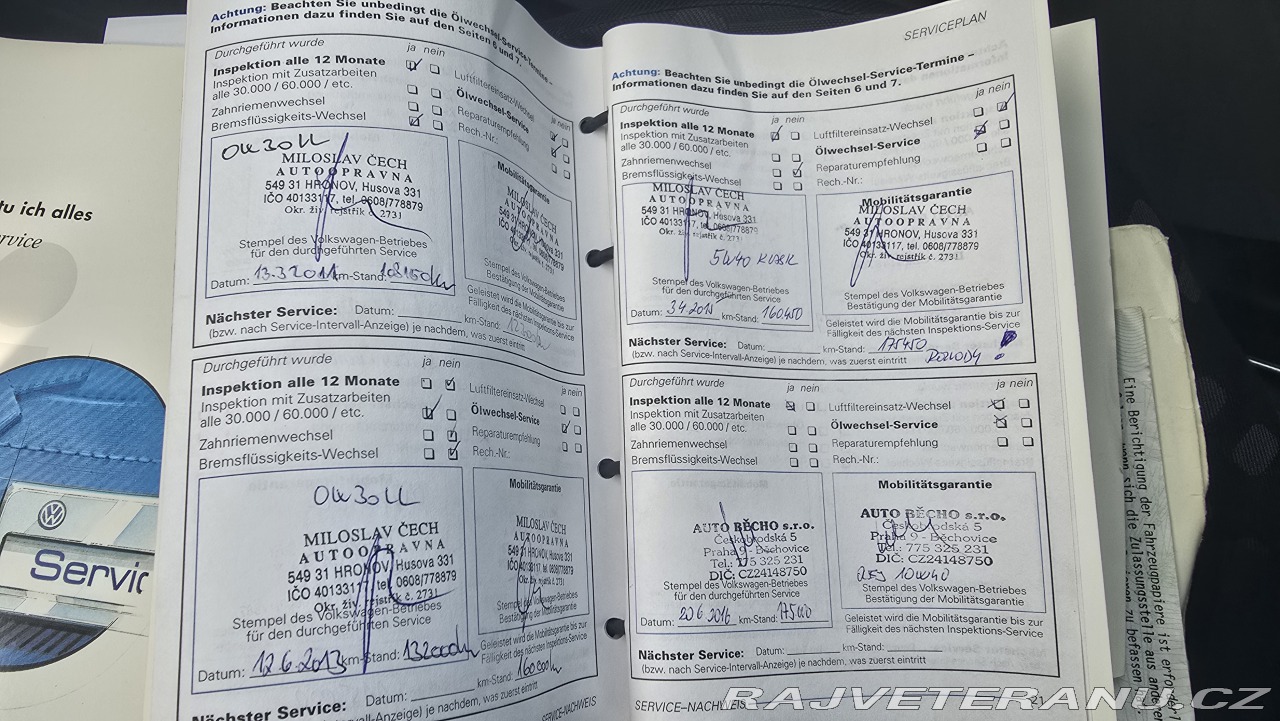 tu ich alles
ervice
Servic
Achtung: Beachten Sie unbedingt die Ölwechsel-Service-Termine –
Informationen dazu finden Sie auf den Seiten 6 und 7.
Durchgeführt wurde
ja nein
Inspektion alle 12 Monate
Inspektion mit Zusatzarbeiten
alle 30.000 / 60.000 / etc.
Zahnriemenwechsel
Bremsflüssigkeits-Wechsel
Luftfiltereinsatz-Wechsel
Ölwechsel-Service
Reparaturempfehlung
Rech.-Nr.:
ja nein
0W30LL
MILOSLAV ČECH
AUTOOPRAVNA
549 31 HRONOV, Husova 331
IČO 40133117, tel. 0608/778879
Okr. živ. rejstřík č. 2731
Stempel des Volkswagen-Betriebes
für den durchgeführten Service
Datum: 13.3.2011 km-Stand:
Mobilitätsgarantie
MILOSLAV ČECH
Stempel des Volkswagen-Betriebes
Bestätigung der Mobilitätsgarantie
Geleistet wird die Mobilitätsgarantie bis zur
Fälligkeit des nächsten Inspektions-Service
Nächster Service: Datum: km-Stand:
(bzw. nach Service-Intervall-Anzeige) je nachdem, was zuerst eintritt
Durchgeführt wurde
ja nein
Inspektion alle 12 Monate
Inspektion mit Zusatzarbeiten
alle 30.000 / 60.000 / etc.
Zahnriemenwechsel
Bremsflüssigkeits-Wechsel
Luftfiltereinsatz-Wechsel
Ölwechsel-Service
Reparaturempfehlung
Rech.-Nr.:
ja nein
0W30LL
MILOSLAV ČECH
AUTOOPRAVNA
549 31 HRONOV, Husova 331
IČO 40133117, tel. 0608/778879
Okr. živ. rejstřík č. 2731
Stempel des Volkswagen-Betriebes
für den durchgeführten Service
Datum: 12.6.2013 km-Stand: 132000km
Mobilitätsgarantie
MILOSLAV ČECH
AUTOOPRAVNA
549 31 HRONOV, Husova 331
Stempel des Volkswagen-Betriebes
Bestätigung der Mobilitätsgarantie
Geleistet wird die Mobilitätsgarantie bis zur
Fälligkeit des nächsten Inspektions-Service
Nächster Service: Datum: km-Stand:
(bzw. nach Service-Intervall-Anzeige) je nachdem, was zuerst eintritt
SERVICE-NACHWEIS
SERVICEPLAN
Achtung: Beachten Sie unbedingt die Ölwechsel-Service-Termine –
Informationen dazu finden Sie auf den Seiten 6 und 7.
Durchgeführt wurde
ja nein
Inspektion alle 12 Monate
Inspektion mit Zusatzarbeiten
alle 30.000 / 60.000 / etc.
Zahnriemenwechsel
Bremsflüssigkeits-Wechsel
ja nein
Luftfiltereinsatz-Wechsel
Ölwechsel-Service
Reparaturempfehlung
Rech.-Nr.:
MILOSLAV ČECH
AUTOOPRAVNA
549 31 HRONOV, Husova 331
IČO 40133117, tel. 0608/778879
Okr. živ. rejstřík č. 2731
5W40
Stempel des Volkswagen-Betriebes
für den durchgeführten Service
Datum: 3.4.2015 km-Stand: 160450
Mobilitätsgarantie
MILOSLAV ČECH
AUTOOPRAVNA
549 31 HRONOV, Husova 331
IČO 40133117, tel. 0608/778879
Okr. živ. rejstřík č. 2731
Stempel des Volkswagen-Betriebes
Bestätigung der Mobilitätsgarantie
Geleistet wird die Mobilitätsgarantie bis zur
Fälligkeit des nächsten Inspektions-Service
Nächster Service: Datum: km-Stand: 175450
(bzw. nach Service-Intervall-Anzeige) je nachdem, was zuerst eintritt
Durchgeführt wurde
ja nein
Inspektion alle 12 Monate
Inspektion mit Zusatzarbeiten
alle 30.000 / 60.000 / etc.
Zahnriemenwechsel
Bremsflüssigkeits-Wechsel
ja nein
Luftfiltereinsatz-Wechsel
Ölwechsel-Service
Reparaturempfehlung
Rech.-Nr.:
AUTO BĚCHO s.r.o.
Českobrodská 5
Praha 9 - Běchovice
Tel.: 775 325 231
DIČ: CZ24148750
Stempel des Volkswagen-Betriebes
für den durchgeführten Service
Datum: 20.6.2016 km-Stand:
Mobilitätsgarantie
AUTO BĚCHO s.r.o.
Českobrodská 5
Praha 9 - Běchovice
Tel.: 775 325 231
DIČ: CZ24148750
10W40
Stempel des Volkswagen-Betriebes
Bestätigung der Mobilitätsgarantie
Geleistet wird die Mobilitätsgarantie bis zur
Fälligkeit des nächsten Inspektions-Service
Nächster Service: Datum: km-Stand:
(bzw. nach Service-Intervall-Anzeige) je nachdem, was zuerst eintritt
SERVICE-NACHWEIS
Eine Berichtigung der Fahrzeugpapiere ist erforder
RAJVETERANU.CZ